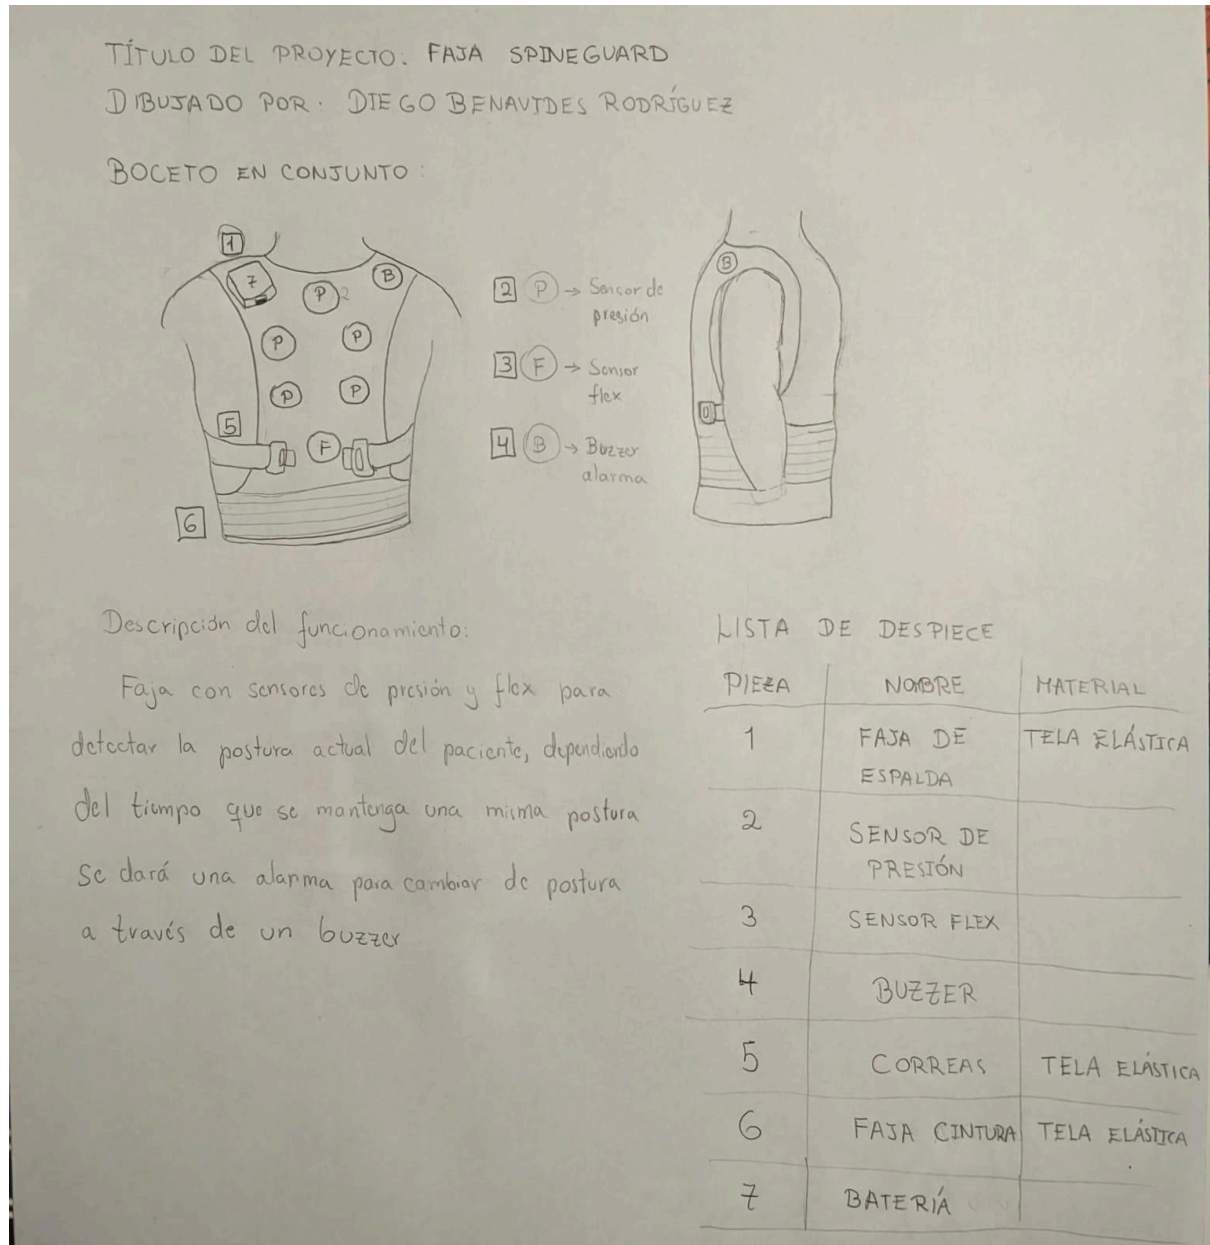 TÍTULO DEL PROYECTO: FAJA SPINEGUARD
DIBUJADO POR: DIEGO BENAVIDES RODRÍGUEZ
BOCETO EN CONJUNTO:
1
7
P 2
B
P
P
P
P
5
F
6
2 P → Sensor de
presión
3 F → Sensor
flex
4 B → Buzzer
alarma
B
Descripción del funcionamiento:
Faja con sensores de presión y flex para
detectar la postura actual del paciente, dependiendo
del tiempo que se mantenga una misma postura
se dará una alarma para cambiar de postura
a través de un buzzer
LISTA DE DESPIECE
PIEZA NOMBRE MATERIAL
1 FAJA DE TELA ELÁSTICA
ESPALDA
2 SENSOR DE
PRESIÓN
3 SENSOR FLEX
4 BUZZER
5 CORREAS TELA ELÁSTICA
6 FAJA CINTURA TELA ELÁSTICA
7 BATERÍA